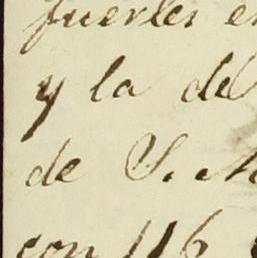 fuerles e
y la de
de S. M
con 116